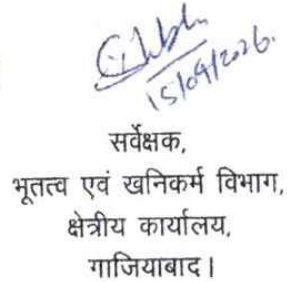 15/09/2026.
सर्वेक्षक,
भूतत्व एवं खनिकर्म विभाग,
क्षेत्रीय कार्यालय,
गाजियाबाद।